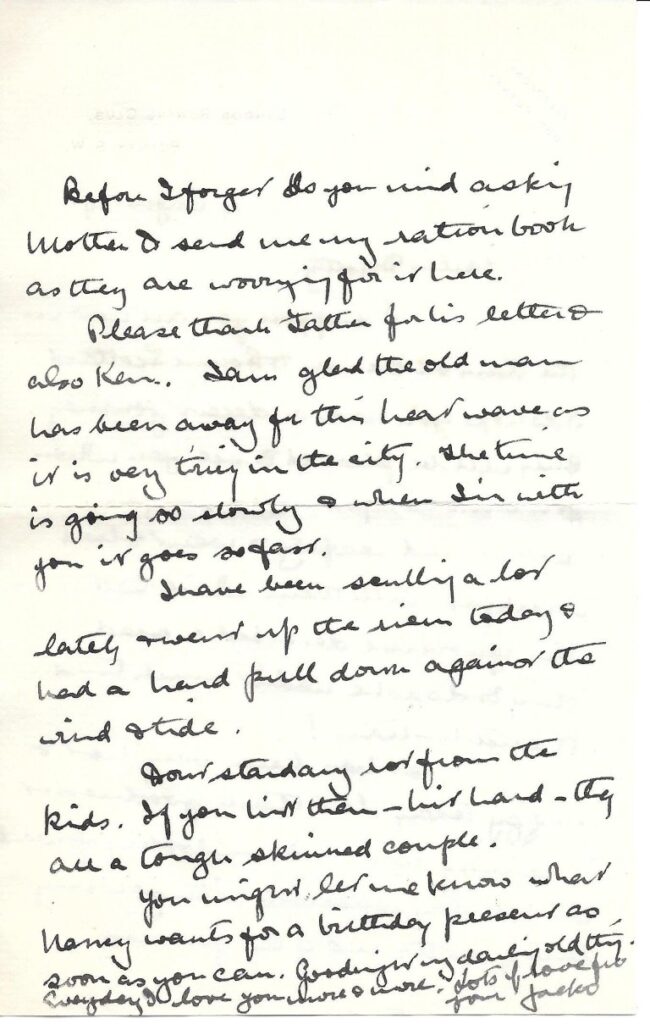 Before I forget do you mind asking
Mother to send me my ration book
as they are worrying for it here.
Please thank Father for his letter &
also Ken. I am glad the old man
has been away for this heat wave as
it is very tricy in the city. The time
is going so slowly & when I'm with
you it goes so fast.
I have been sculling a lot
lately & went up the river today &
had a hard pull down against the
wind & tide.
Dont stand any rot from the
kids. If you hit them - hit hard - they
are a tough skinned couple.
You might let me know what
Nancy wants for a birthday present as
soon as you can. Goodnight my darling old thing.
Everyday I love you more & more. Lots of love from
your Jacko